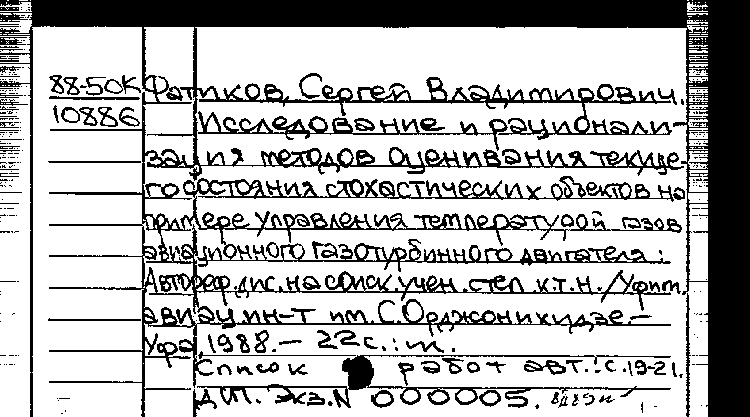 88-50К Фатиков, Сергей Владимирович.
10886 Исследование и рационали-
зация методов оценивания текуще-
го состояния стохастических объектов на
примере управления температурой газов
авиационного газотурбинного двигателя:
Автореф. дис. на соиск. учен. степ. к.т.н. / Уфим.
авиац. ин-т им. С. Орджоникидзе. –
Уфа, 1988. – 22 с.: ил.
Список работ авт.: с. 19-21.
ДСП. Экз. N 000005.